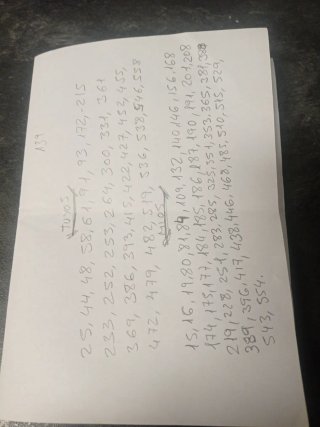 139
25, 44, 48, 58, 61, 91, 93, 172, 215
233, 252, 253, 264, 300, 331, 361
369, 386, 393, 415, 422, 427, 452, 455,
472, 479, 482, 519, 536, 538, 546, 558
15, 16, 19, 80, 81, 84, 109, 132, 140, 146, 156, 168
174, 175, 177, 184, 185, 186, 187, 190, 191, 201, 208
219, 228, 251, 283, 285, 325, 351, 353, 365, 381,
389, 396, 417, 438, 446, 468, 485, 510, 515, 529,
543, 554.